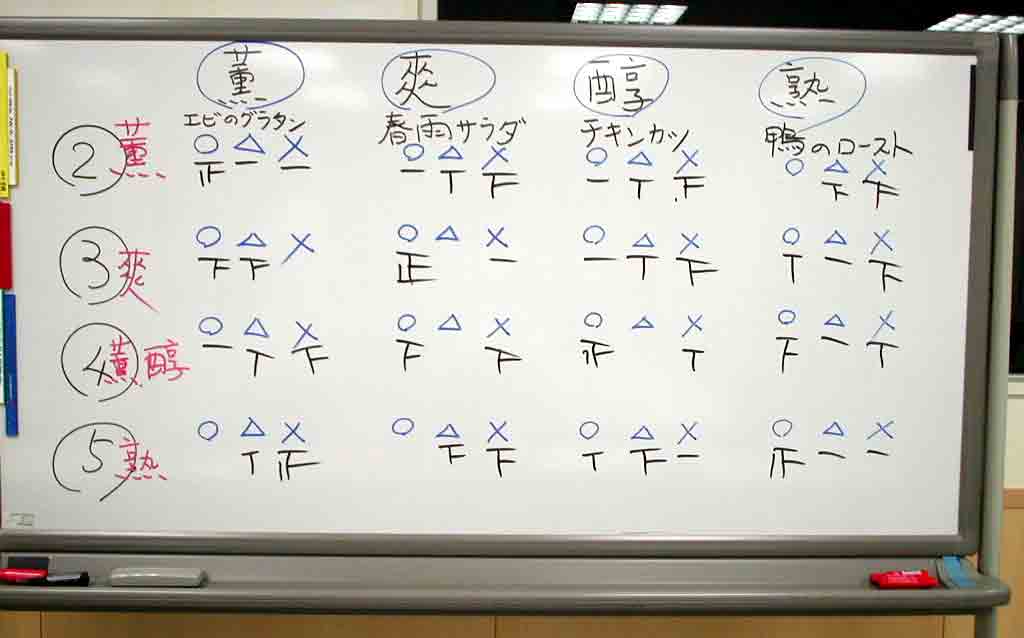 薫 爽 醇 熟
エビのグラタン 春雨サラダ チキンカツ 鴨のロースト
② 薫 ○ △ × ○ △ × ○ △ × ○ △ ×
𤴓 一 一 一 T 下 一 T 下 下 下
③ 爽 ○ △ × ○ △ × ○ △ × ○ △ ×
下 下 正 一 一 T 下 T 一 下
④ 薫 醇 ○ △ × ○ △ × ○ △ × ○ △ ×
一 T 下 下 下 𤴓 T 下 一 T
⑤ 熟 ○ △ × ○ △ × ○ △ × ○ △ ×
T 𤴓 下 下 T 下 一 𤴓 一 一